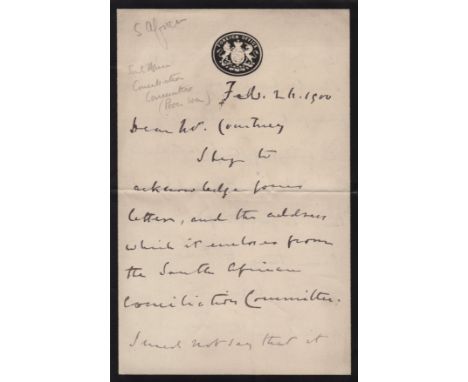 S Africa
FOREIGN OFFICE
South African
Conciliation
Committee
(Boer War)
Feb. 24. 1900
Dear Mr. Courtney
I beg to
acknowledge your
letter, and the address
which it encloses from
the South African
Conciliation Committee.
I need not say that it